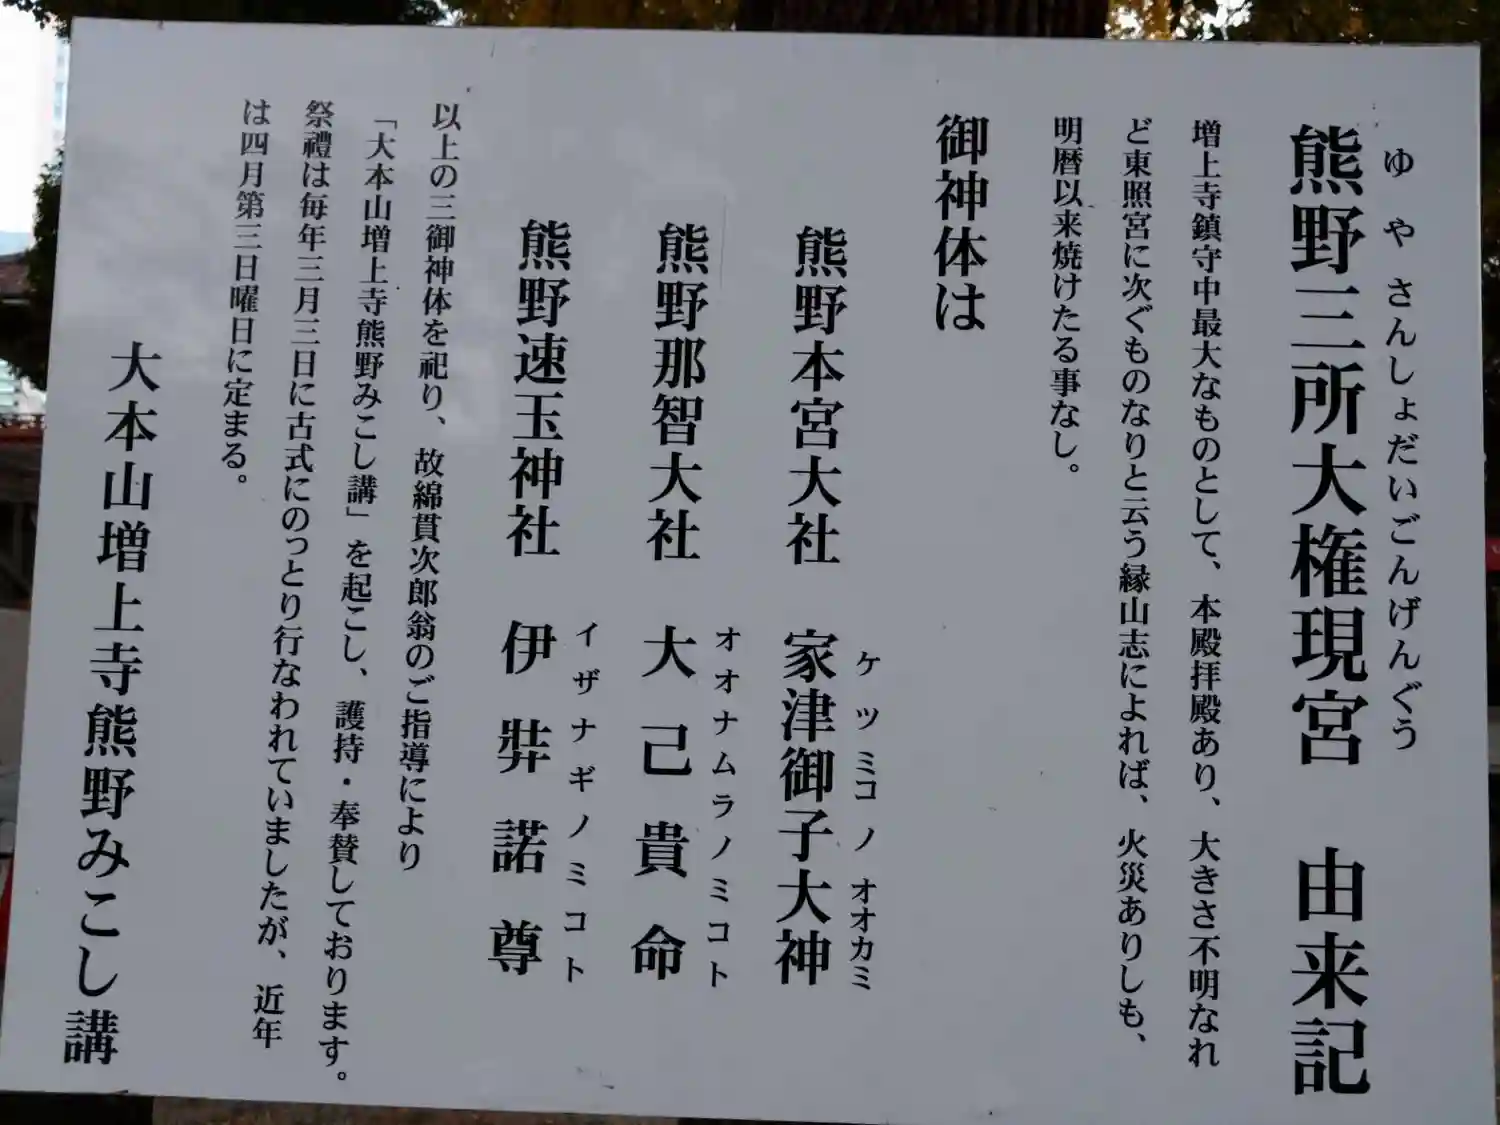 ゆやさんしょだいごんげんぐう
熊野三所大権現宮　由来記
増上寺鎮守中最大なものとして、本殿拝殿あり、大きさ不明なれ
ど東照宮に次ぐものなりと云う縁山志によれば、火災ありしも、
明暦以来焼けたる事なし。
御神体は
ケツミコノオオカミ
熊野本宮大社　家津御子大神
オオナムラノミコト
熊野那智大社　大己貴命
イザナギノミコト
熊野速玉神社　伊弉諾尊
以上の三御神体を祀り、故綿貫次郎翁のご指導により
「大本山増上寺熊野みこし講」を起こし、護持・奉賛しております。
祭禮は毎年三月三日に古式にのっとり行なわれていましたが、近年
は四月第三日曜日に定まる。
大本山増上寺熊野みこし講